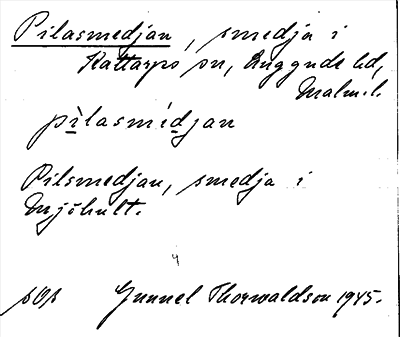 Pilasmedjan, smedja i
Kattarps sn, Luggude hd,
Malm.l.
pìlasmídjan
Pilsmedjan, smedja i
Mjöhult.
4
sOs Gunnel Thorwaldson 1945.